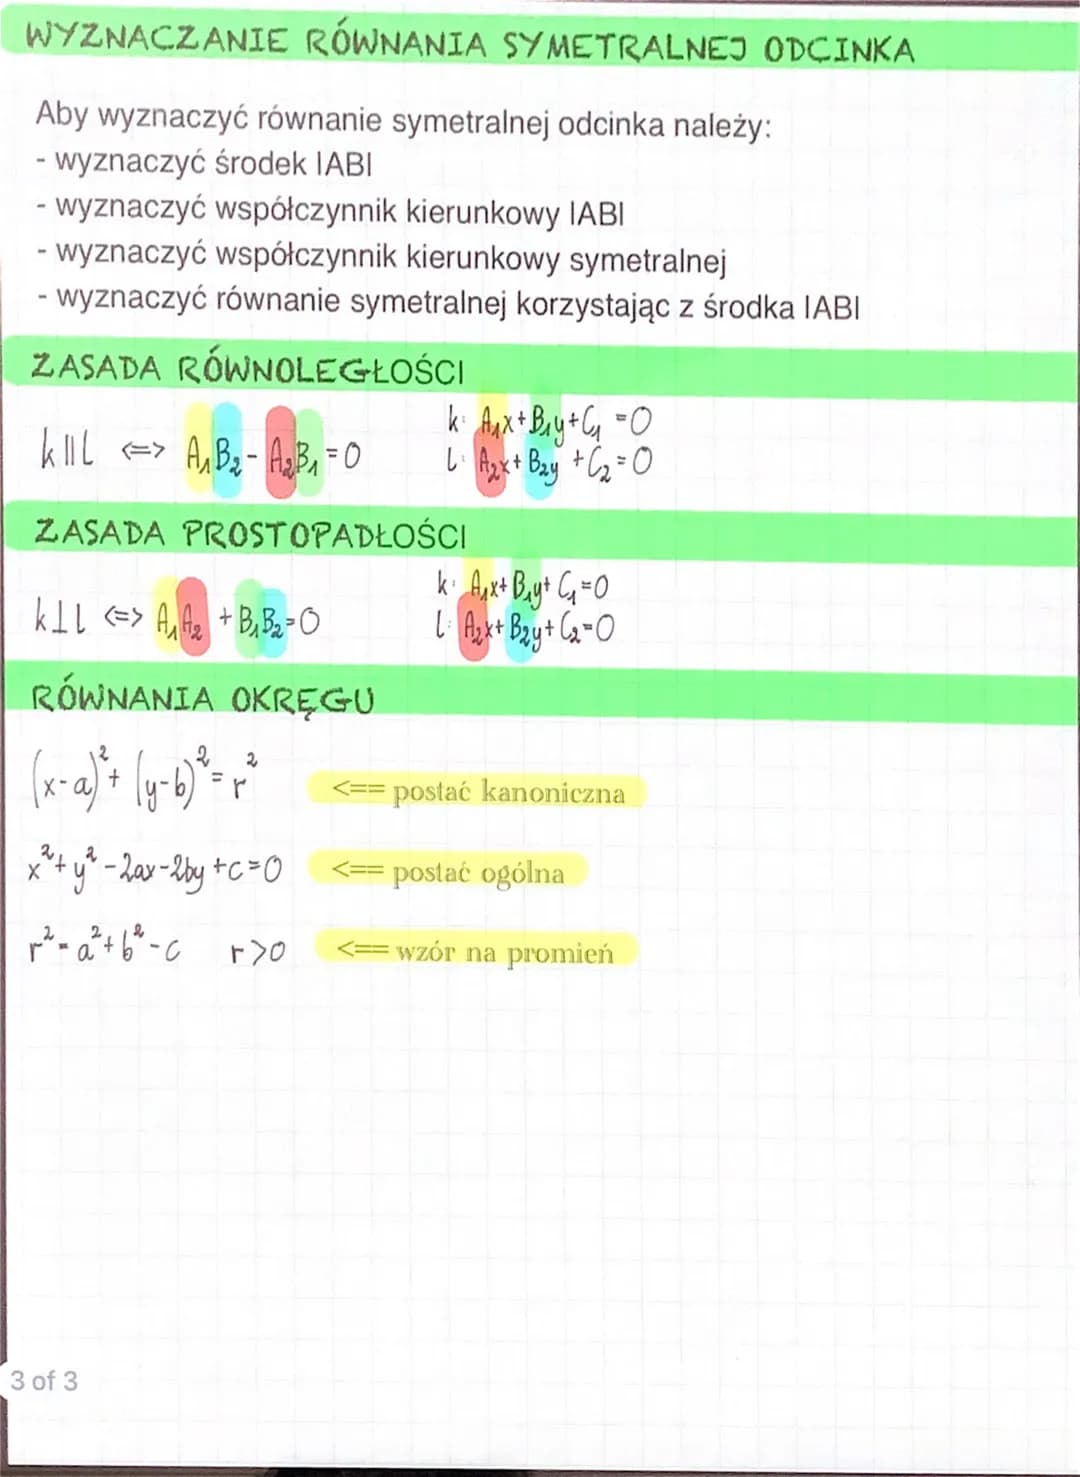 WYZNACZANIE RÓWNANIA SYMETRALNEJ ODCINKA
Aby wyznaczyć równanie symetralnej odcinka należy:
- wyznaczyć środek IABI
- wyznaczyć współczynnik kierunkowy IABI
- wyznaczyć współczynnik kierunkowy symetralnej
- wyznaczyć równanie symetralnej korzystając z środka IABI
ZASADA RÓWNOLEGŁOŚCI
k || l <=> A₁B₂ - A₂B₁ = 0
k: A₁x + B₁y + C₁ = 0
l: A₂x + B₂y + C₂ = 0
ZASADA PROSTOPADŁOŚCI
k ⊥ l <=> A₁A₂ + B₁B₂ = 0
k: A₁x + B₁y + C₁ = 0
l: A₂x + B₂y + C₂ = 0
RÓWNANIA OKRĘGU
(x-a)² + (y-b)² = r² <== postać kanoniczna
x² + y² - 2ax - 2by + c = 0 <== postać ogólna
r² = a² + b² - c r > 0 <== wzór na promień
3 of 3